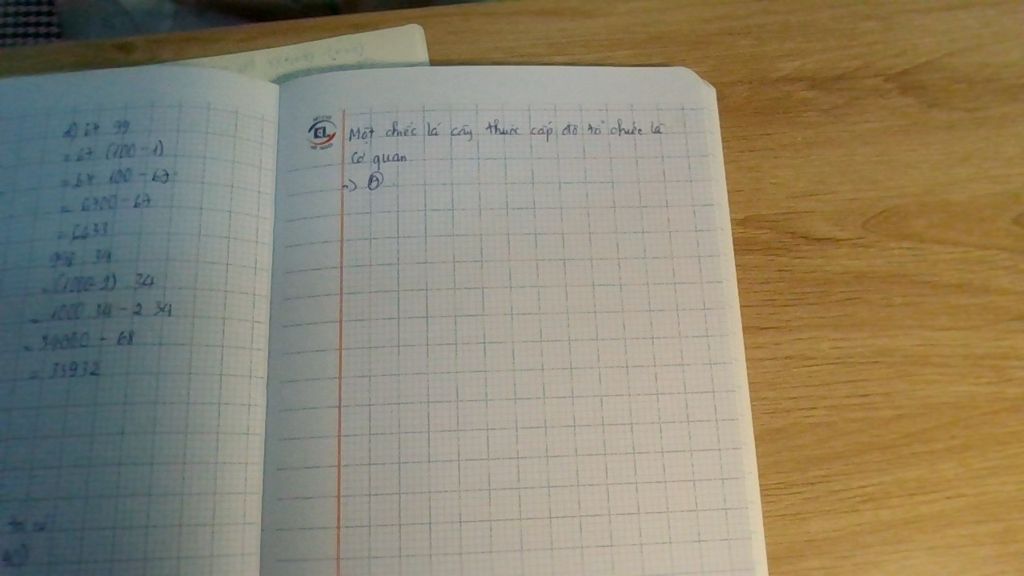 2) 67 99
= 67 (100 - 1)
= 67 100 - 67
= 6700 - 67
= 6633
998 34
(1000 - 2) 34
= 1000 34 - 2 34
= 34000 - 68
= 33932
Một chiếc lá cây thuộc cấp độ tổ chức là
Cơ quan
=> A